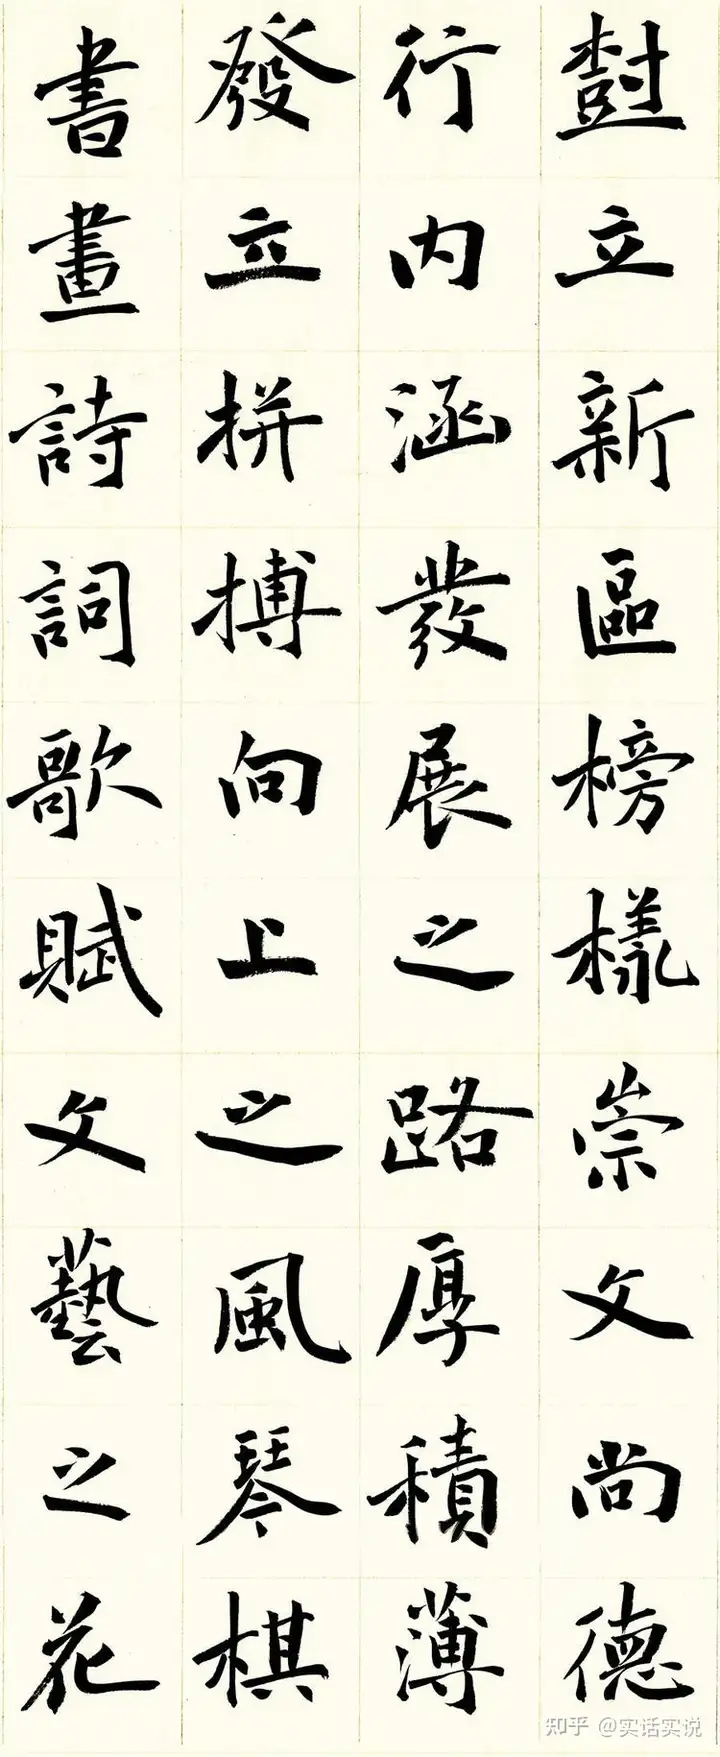 樹立新區榜樣崇文尚德
行内涵發展之路厚積薄
發立拼搏向上之風琴棋
書畫詩詞歌賦文藝之花
知乎 @实话实说